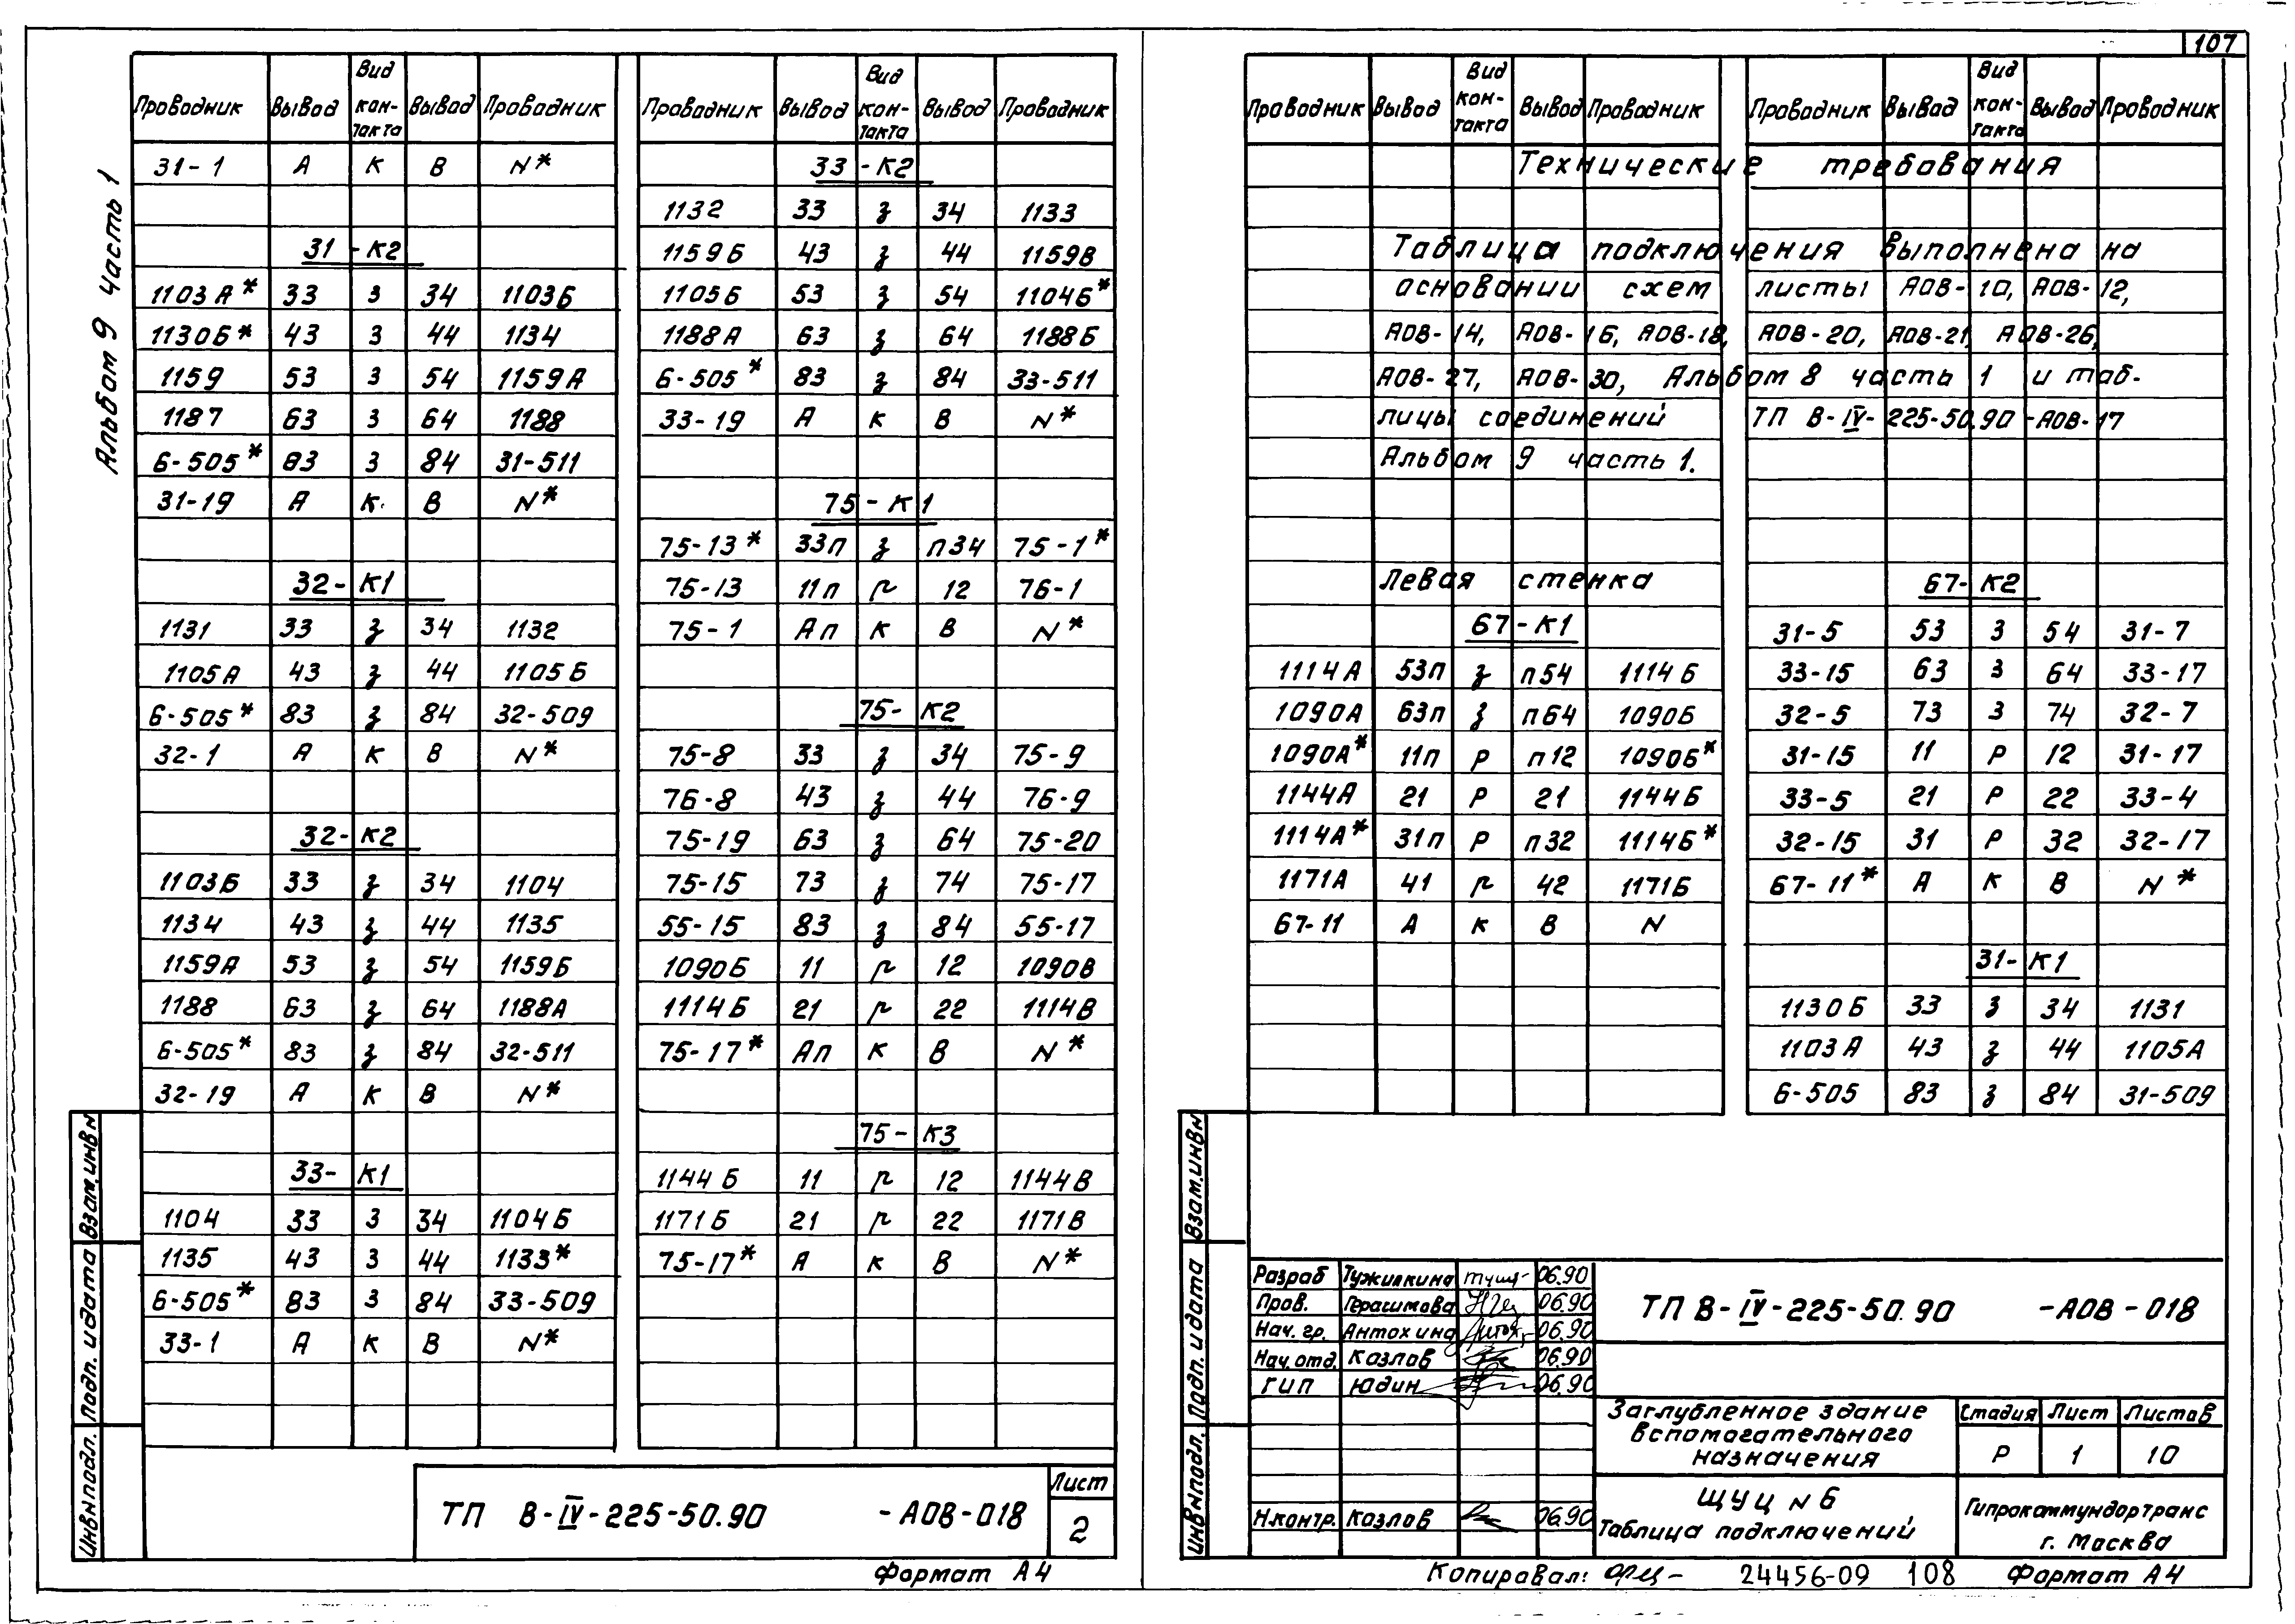 107
Альбом 9 часть 1
Проводник Вывод Вид контакта Вывод Проводник
31-1 А К В N*
31-К2
1103А* 33 З 34 1103Б
1130Б* 43 З 44 1134
1159 53 З 54 1159А
1187 63 З 64 1188
6-505* 83 З 84 31-511
31-19 А К В N*
32-К1
1131 33 З 34 1132
1105А 43 З 44 1105Б
6-505* 83 З 84 32-509
32-1 А К В N*
32-К2
1103Б 33 З 34 1104
1134 43 З 44 1135
1159А 53 З 54 1159Б
1188 63 З 64 1188А
6-505* 83 З 84 32-511
32-19 А К В N*
33-К1
1104 33 З 34 1104Б
1135 43 З 44 1133*
6-505* 83 З 84 33-509
33-1 А К В N*
Проводник Вывод Вид контакта Вывод Проводник
33-К2
1132 33 З 34 1133
1159Б 43 З 44 1159В
1105Б 53 З 54 1104Б*
1188А 63 З 64 1188Б
6-505* 83 З 84 33-511
33-19 А К В N*
75-К1
75-13* 33П З П34 75-1*
75-13 11П Р 12 76-1
75-1 АП К В N*
75-К2
75-8 33 З 34 75-9
76-8 43 З 44 76-9
75-19 63 З 64 75-20
75-15 73 З 74 75-17
55-15 83 З 84 55-17
1090Б 11 Р 12 1090В
1114Б 21 Р 22 1114В
75-17* АП К В N*
75-К3
1144Б 11 Р 12 1144В
1171Б 21 Р 22 1171В
75-17* А К В N*
Инв.N подл. Подп. и дата Взам.инв.N
ТП В-IV-225-50.90 -АОВ-018
Лист
2
Формат А4
Проводник Вывод Вид контакта Вывод Проводник
Проводник Вывод Вид контакта Вывод Проводник
Технические требования
Таблица подключения выполнена на
основании схем листы АОВ-10, АОВ-12,
АОВ-14, АОВ-16, АОВ-18, АОВ-20, АОВ-21, АОВ-26,
АОВ-27, АОВ-30, Альбом 8 часть 1 и таб-
лицы соединений ТП В-IV-225-50.90-АОВ-17
Альбом 9 часть 1.
Левая стенка
67-К1
1114А 53П З П54 1114Б
1090А 63П З П64 1090Б
1090А* 11П Р П12 1090Б*
1144А 21 Р 21 1144Б
1114А* 31П Р П32 1114Б*
1171А 41 Р 42 1171Б
67-11 А К В N
67-К2
31-5 53 З 54 31-7
33-15 63 З 64 33-17
32-5 73 З 74 32-7
31-15 11 Р 12 31-17
33-5 21 Р 22 33-4
32-15 31 Р 32 32-17
67-11* А К В N*
31-К1
1130Б 33 З 34 1131
1103А 43 З 44 1105А
6-505 83 З 84 31-509
Инв.N подл. Подп. и дата Взам.инв.N
Разраб Тужилкина 06.90
Пров. Герасимова 06.90
Нач. гр. Антохина 06.90
Нач. отд. Козлов 06.90
ГИП Юдин 06.90
Н.контр. Козлов 06.90
ТП В-IV-225-50.90 -АОВ-018
Заглубленное здание
вспомогательного
назначения
Стадия Лист Листов
Р 1 10
ЩУЦ N 6
Таблица подключений
Гипрокоммундортранс
г. Москва
Копировал: 24456-09 108 Формат А4